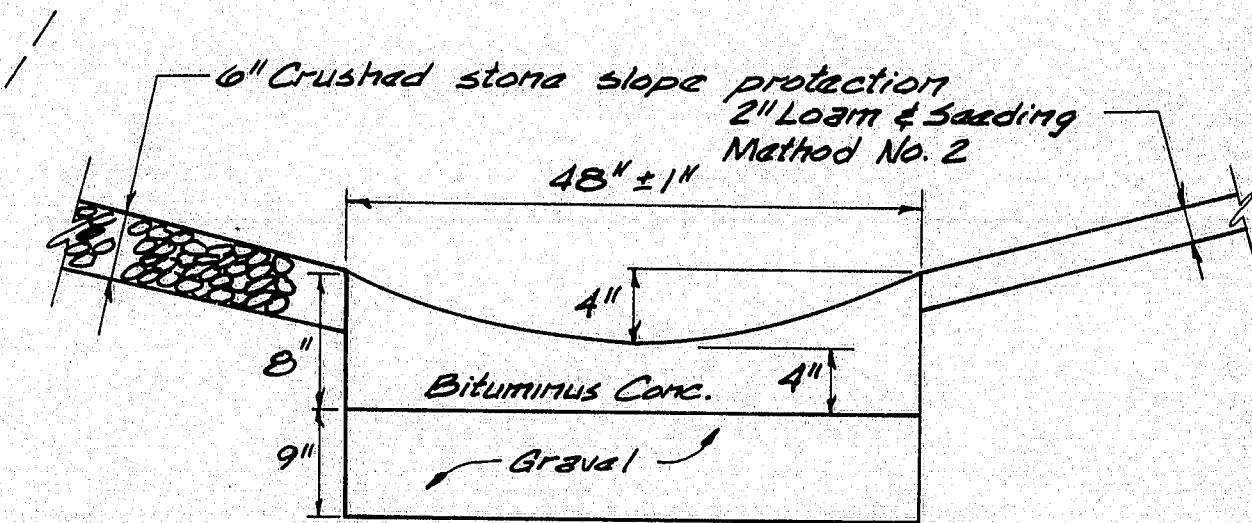 6" Crushed stone slope protection
2" Loam & Seeding
Method No. 2
48" ± 1"
4"
8"
4"
Bituminus Conc.
9"
Gravel